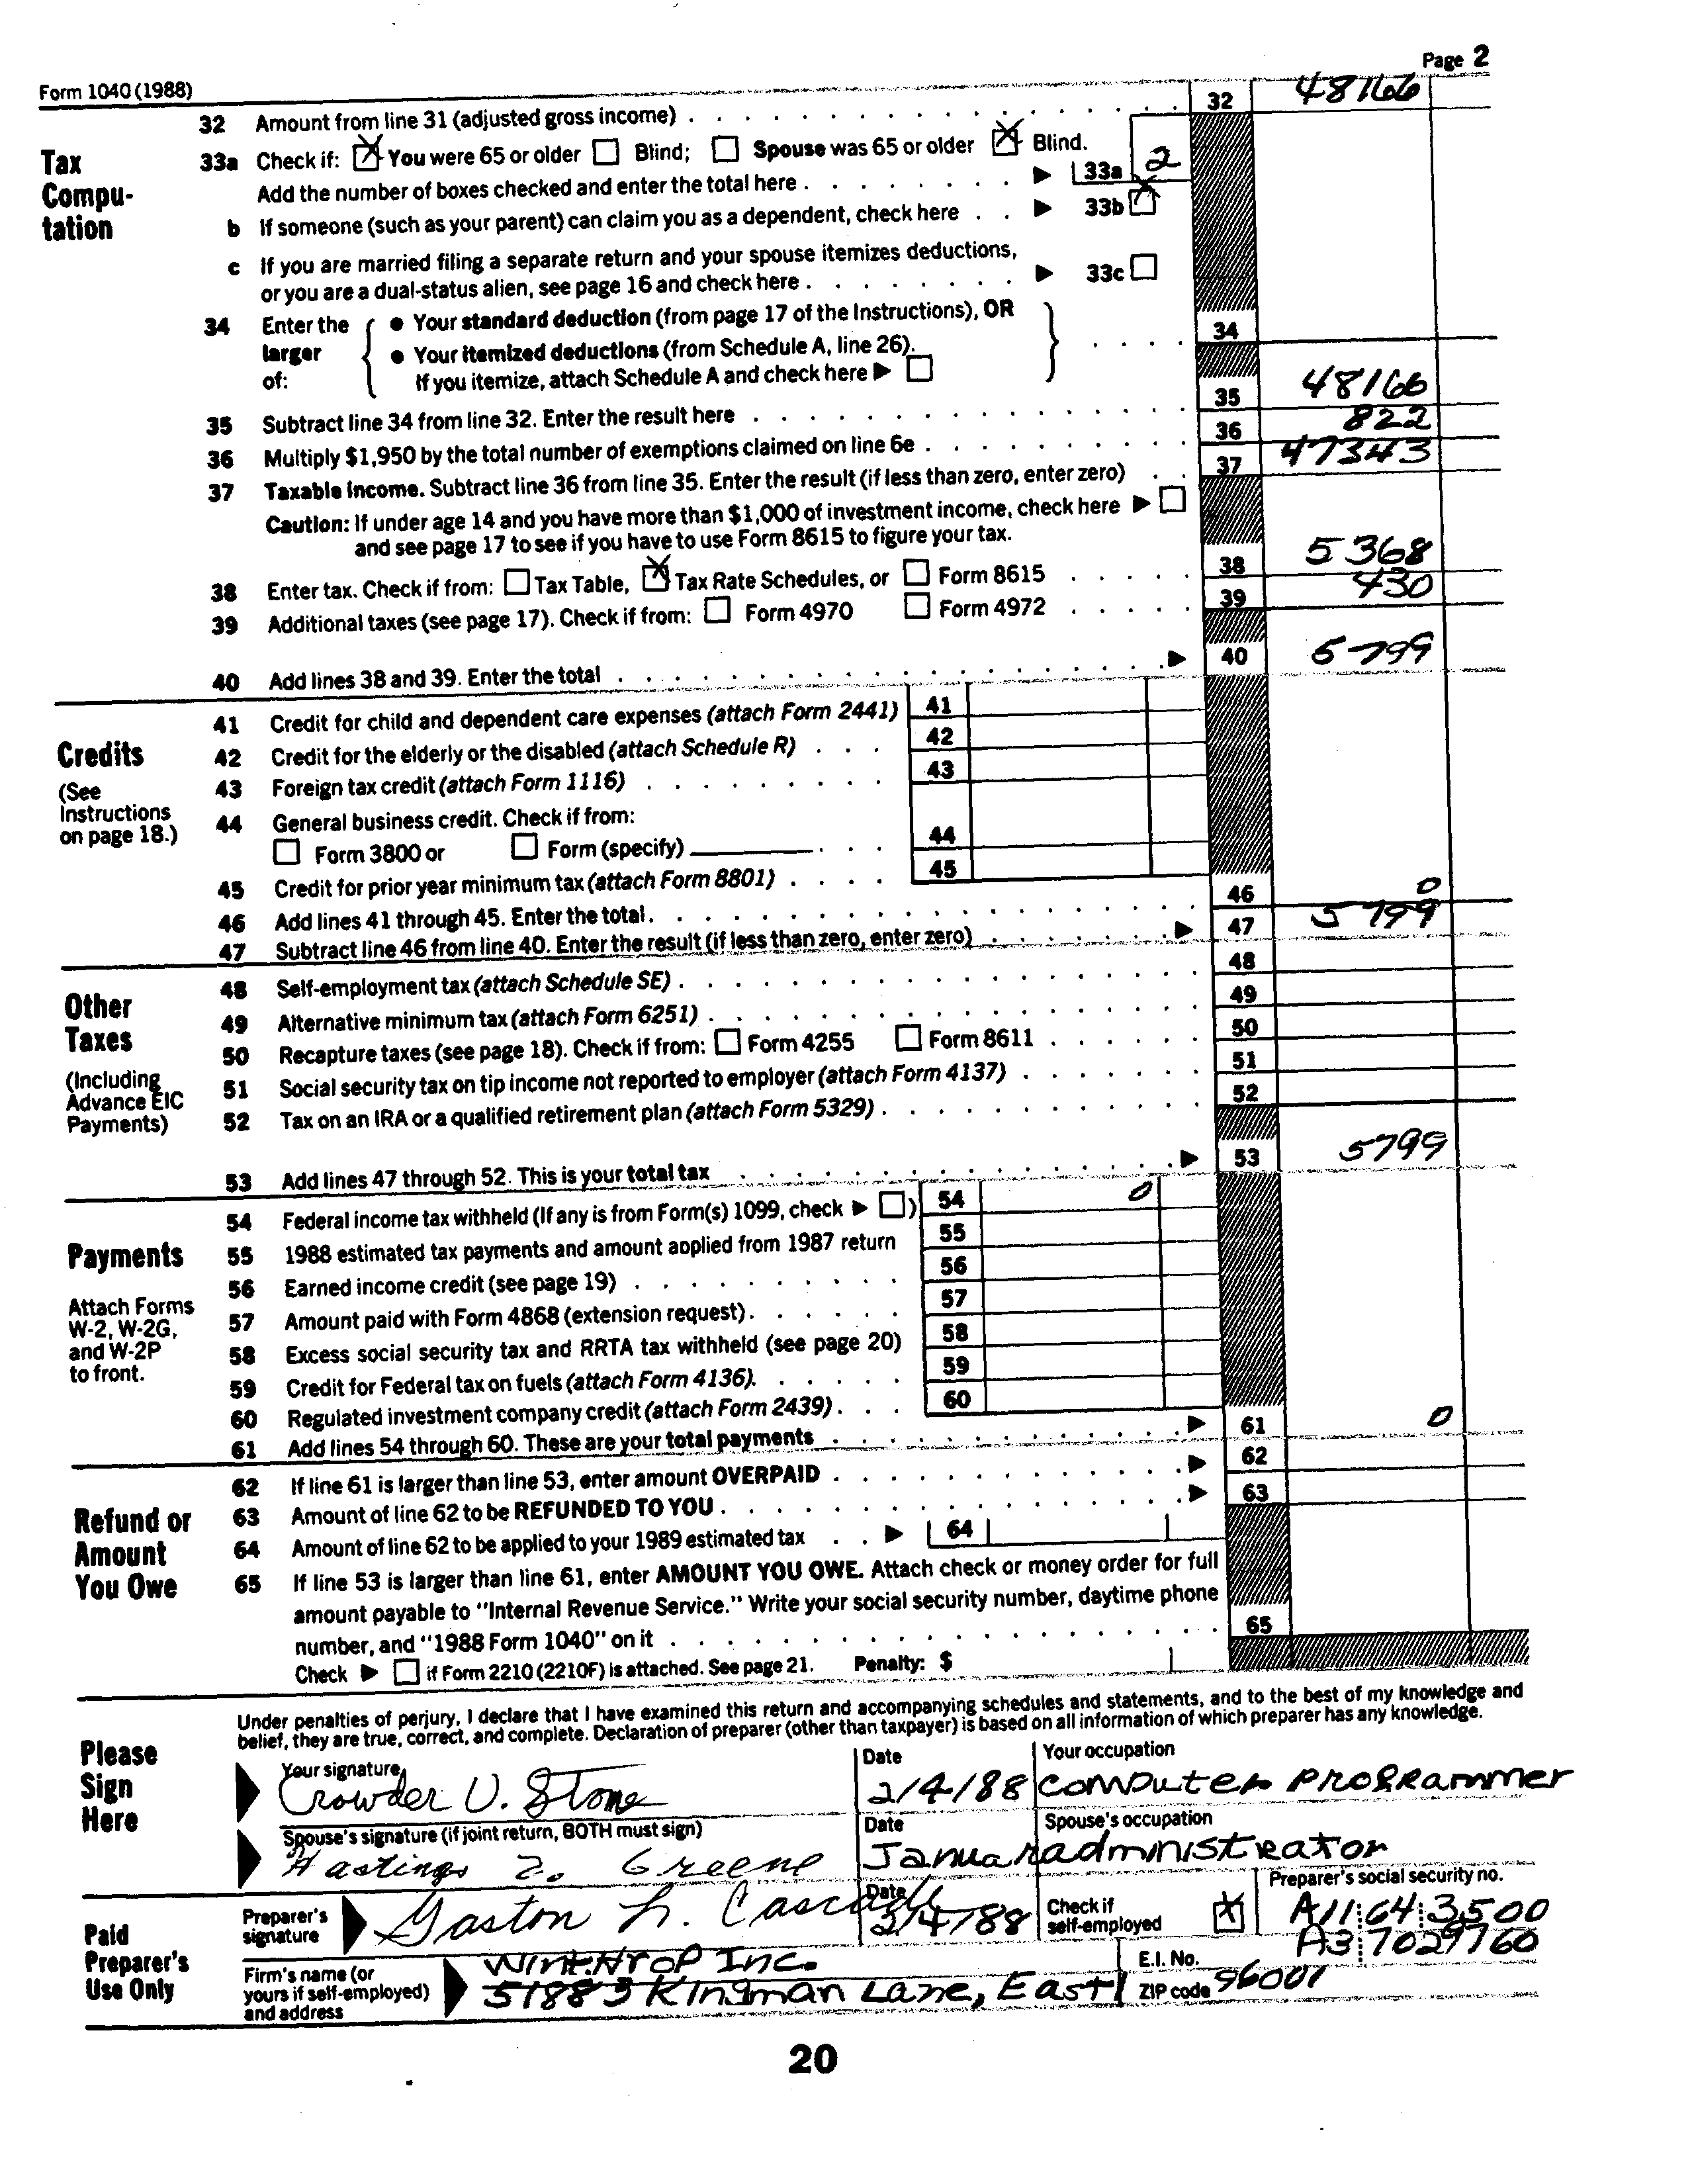 Page 2
Form 1040 (1988)
32 Amount from line 31 (adjusted gross income) 32 48166
Tax Compu- tation
33a Check if: X You were 65 or older Blind; Spouse was 65 or older X Blind.
Add the number of boxes checked and enter the total here 33a 2
b If someone (such as your parent) can claim you as a dependent, check here 33b X
c If you are married filing a separate return and your spouse itemizes deductions,
or you are a dual-status alien, see page 16 and check here 33c
34 Enter the larger of: { • Your standard deduction (from page 17 of the Instructions), OR
• Your itemized deductions (from Schedule A, line 26). } 34
If you itemize, attach Schedule A and check here
35 Subtract line 34 from line 32. Enter the result here 35 48166
36 Multiply $1,950 by the total number of exemptions claimed on line 6e 36 822
37 Taxable income. Subtract line 36 from line 35. Enter the result (if less than zero, enter zero) 37 47343
Caution: If under age 14 and you have more than $1,000 of investment income, check here
and see page 17 to see if you have to use Form 8615 to figure your tax.
38 Enter tax. Check if from: Tax Table, X Tax Rate Schedules, or Form 8615 38 5368
39 Additional taxes (see page 17). Check if from: Form 4970 Form 4972 39 430
40 Add lines 38 and 39. Enter the total 40 5799
Credits
(See Instructions on page 18.)
41 Credit for child and dependent care expenses (attach Form 2441) 41
42 Credit for the elderly or the disabled (attach Schedule R) 42
43 Foreign tax credit (attach Form 1116) 43
44 General business credit. Check if from:
Form 3800 or Form (specify) 44
45 Credit for prior year minimum tax (attach Form 8801) 45
46 Add lines 41 through 45. Enter the total 46 0
47 Subtract line 46 from line 40. Enter the result (if less than zero, enter zero) 47 5799
Other Taxes
(Including Advance EIC Payments)
48 Self-employment tax (attach Schedule SE) 48
49 Alternative minimum tax (attach Form 6251) 49
50 Recapture taxes (see page 18). Check if from: Form 4255 Form 8611 50
51 Social security tax on tip income not reported to employer (attach Form 4137) 51
52 Tax on an IRA or a qualified retirement plan (attach Form 5329) 52
53 Add lines 47 through 52. This is your total tax 53 5799
Payments
Attach Forms W-2, W-2G, and W-2P to front.
54 Federal income tax withheld (If any is from Form(s) 1099, check ) 54 0
55 1988 estimated tax payments and amount applied from 1987 return 55
56 Earned income credit (see page 19) 56
57 Amount paid with Form 4868 (extension request) 57
58 Excess social security tax and RRTA tax withheld (see page 20) 58
59 Credit for Federal tax on fuels (attach Form 4136). 59
60 Regulated investment company credit (attach Form 2439) 60
61 Add lines 54 through 60. These are your total payments 61 0
Refund or Amount You Owe
62 If line 61 is larger than line 53, enter amount OVERPAID 62
63 Amount of line 62 to be REFUNDED TO YOU 63
64 Amount of line 62 to be applied to your 1989 estimated tax 64
65 If line 53 is larger than line 61, enter AMOUNT YOU OWE. Attach check or money order for full
amount payable to "Internal Revenue Service." Write your social security number, daytime phone
number, and "1988 Form 1040" on it 65
Check if Form 2210 (2210F) is attached. See page 21. Penalty: $
Please Sign Here
Under penalties of perjury, I declare that I have examined this return and accompanying schedules and statements, and to the best of my knowledge and
belief, they are true, correct, and complete. Declaration of preparer (other than taxpayer) is based on all information of which preparer has any knowledge.
Your signature Date Your occupation
Crowder U. Stone 2/4/88 computer programmer
Spouse's signature (if joint return, BOTH must sign) Date Spouse's occupation
Hastings Z. Greene Januar administrator
Paid Preparer's Use Only
Preparer's signature Date Check if self-employed X Preparer's social security no.
Gaston L. Cascade 2/4/88 A11 64 3500
Firm's name (or yours if self-employed) and address E.I. No. ZIP code
Winthrop Inc. A3 7029760
51883 Kingman Lane, East 96001
20